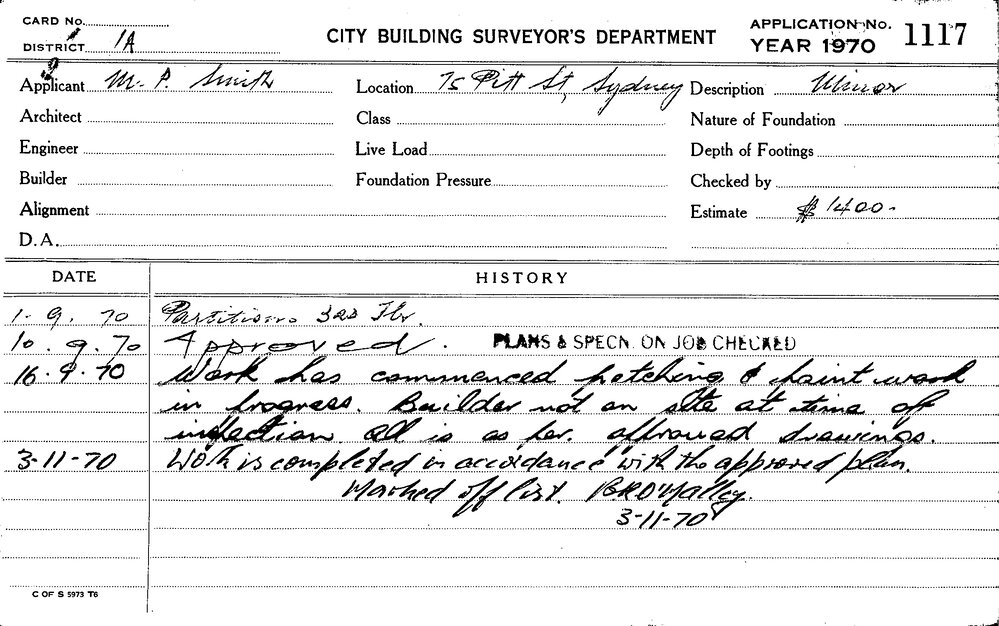 CARD No.
DISTRICT 1A
CITY BUILDING SURVEYOR'S DEPARTMENT
APPLICATION No. 1117
YEAR 1970
Applicant M. P. Smith
Location 75 Pitt St, Sydney
Description Minor
Architect
Class
Nature of Foundation
Engineer
Live Load
Depth of Footings
Builder
Foundation Pressure
Checked by
Alignment
Estimate $1400-
D.A.
DATE HISTORY
1. 9. 70 Partitions 3rd Flr.
10. 9. 70 Approved. PLANS & SPECN. ON JOB CHECKED
16. 9. 70 Work has commenced patching & paint work
in progress. Builder not on site at time of
inspection. All is as per. approved drawings.
3-11-70 Work is completed in accordance with the approved plan.
Marked off list. B R O'Malley.
3-11-70
C OF S 5973 T6